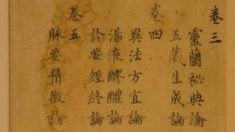 卷三
靈蘭秘典論
五藏生成論
卷四
異法方宜論
湯液醪醴論
診要經終論
卷五
脉要精微論